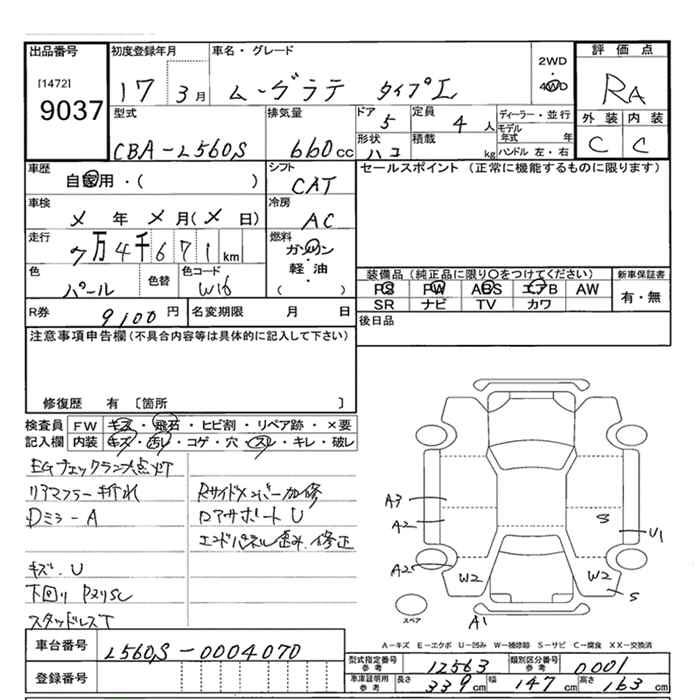 出品番号
[1472]
9037
初度登録年月
17 3月
車名・グレード
ムーヴラテ タイプL
2WD
4WD
評価点
RA
型式
CBA-L560S
排気量
660cc
ドア
5
定員
4人
ディーラー・並行
モデル年式 年
ハンドル 左・右
形状
ハコ
積載
kg
外装 内装
C C
車歴
自家用・( )
シフト
CAT
セールスポイント (正常に機能するものに限ります)
車検
メ年メ月(メ日)
冷房
AC
走行
7万4千671km
燃料
ガソリン
軽・油
( ・ )
色
パール
色替
色コード
W16
装備品 (純正品に限り○をつけてください)
PS PW ABS エアB AW
SR ナビ TV カワ
新車保証書
有・無
R券
9100円
名変期限 月 日
後日品
注意事項申告欄(不具合内容等は具体的に記入して下さい)
修復歴 有 〔箇所 〕
検査員
記入欄
FW キズ・飛石・ヒビ割・リペア跡・×要
内装 キズ・汚レ・コゲ・穴・スレ・キレ・破レ
EGチェックランプ点灯
リアマフラー折れ
Dミラ-A
キズ.U
下回りPスリSC
スタッドレスT
Rサイドメンバー加修
ロアサポートU
エンドパネル歪み.修正
A3
A2
A2
W2
W2
S
U1
S
A1
スペア
A-キズ E-エクボ U-凹み W-補修跡 S-サビ C-腐食 XX-交換済
車台番号
L560S-0004070
登録番号
型式指定番号
参考
12563
類別区分番号
参考
0001
車庫証明用
参考
長さ 339cm 幅 147cm 高さ 163cm